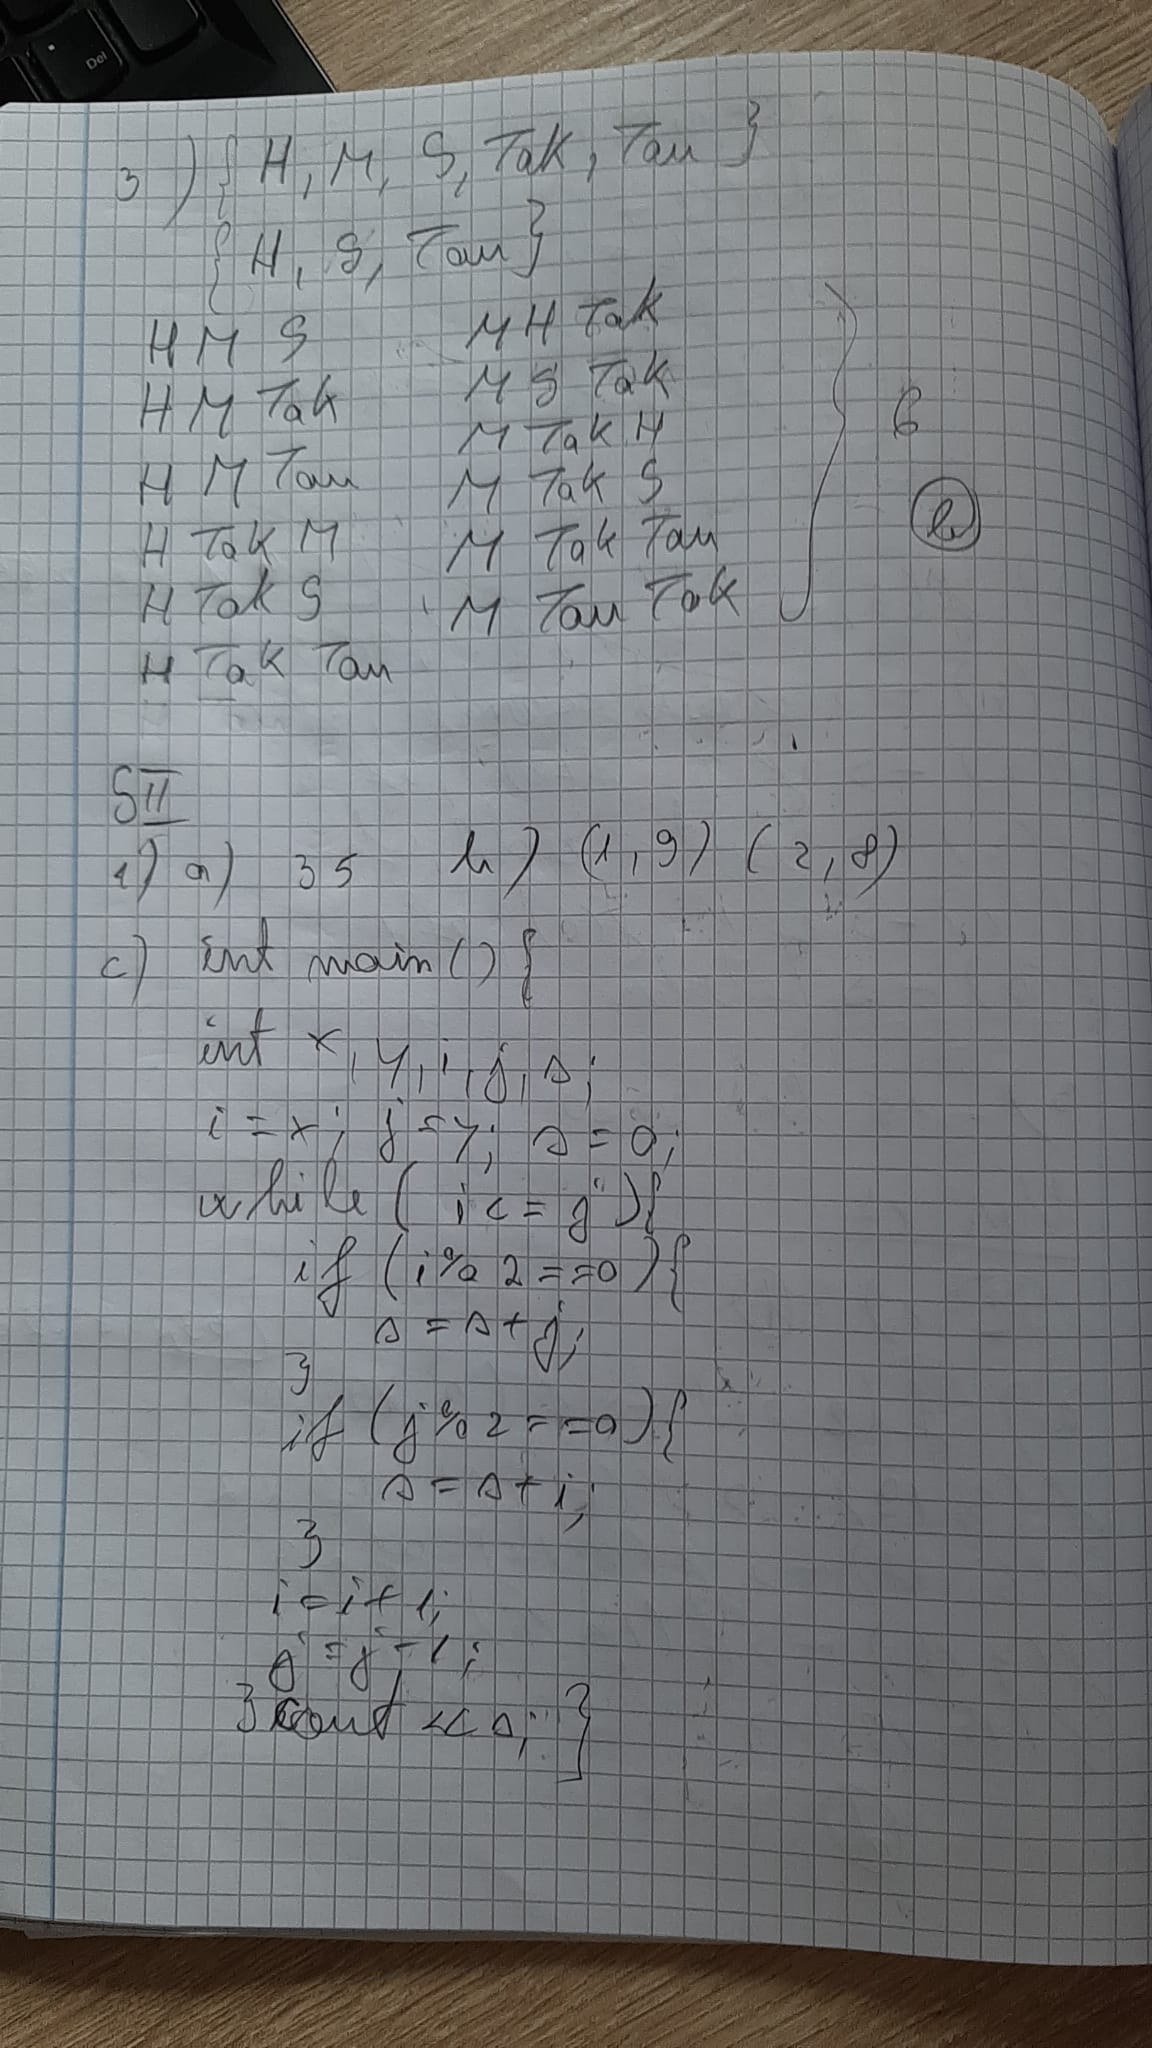 Del
3) {H, M, S, Tak, Tam}
{H, S, Tam}
H M S
H M Tak
H M Tam
H Tak M
H Tak S
H Tak Tam
M H Tak
M S Tak
M Tak H
M Tak S
M Tak Tam
M Tam Tak
6
b
SII
1) a) 35 b) (1,9) (2,8)
c) int main() {
int x, y, i, j, s;
i=x; j=y; s=0;
while ( i<=j ){
if (i%2==0){
s=s+j;
}
if (j%2==0){
s=s+i;
}
i=i+1;
j=j-1;
} cout <<s; }